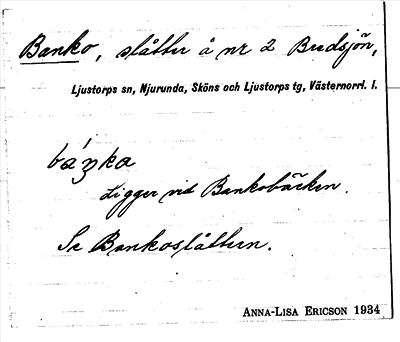 Banko, slåtter å nr 2 Bredsjön,
Ljustorps sn, Njurunda, Sköns och Ljustorps tg, Västernorrl. l.
báŋka
Ligger vid Bankobäcken.
Se Bankoslåttern.
ANNA-LISA ERICSON 1934